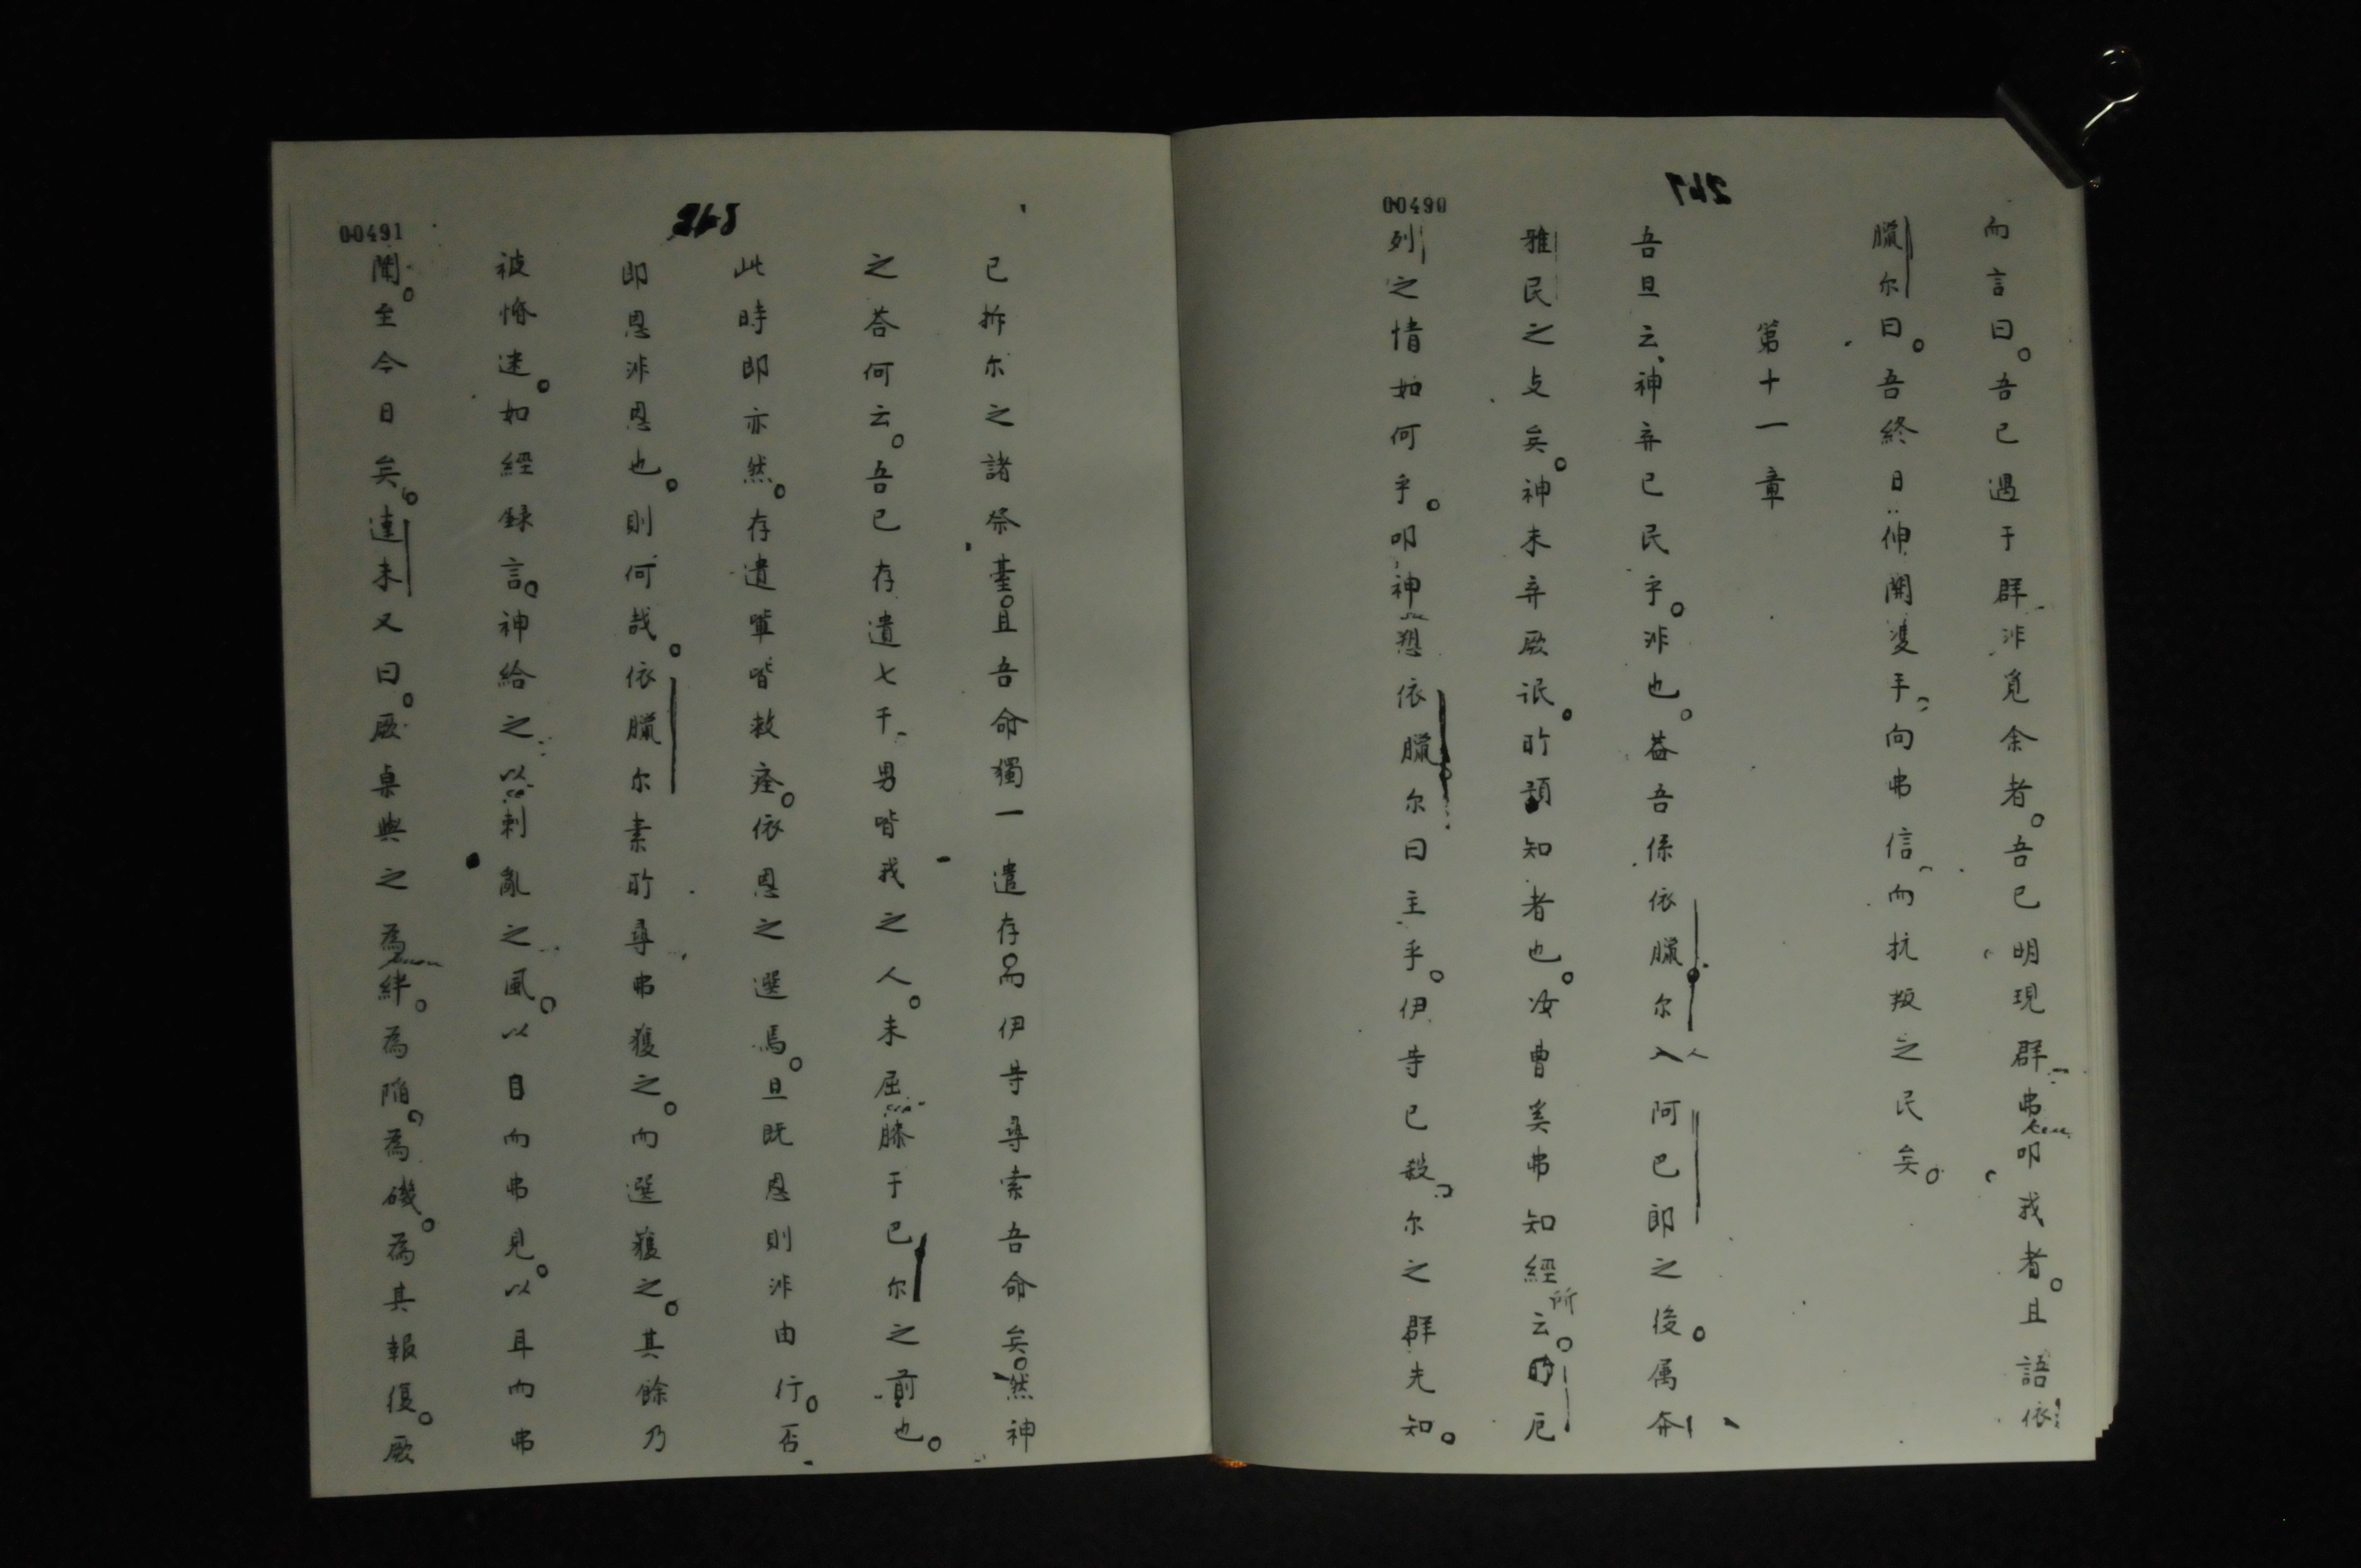 00490
247
而言曰。吾已遇于群非覓余者。吾已明現群弗叩我者。且語依
臘尔曰。吾終日伸開雙手、向弗信、而抗叛之民矣。
第十一章
吾旦云、神弃已民乎。非也。葢吾係依臘尔人阿巴郎之後。属奔
雅民之支矣。神未弃厥氓。所預知者也。汝曹奚弗知經所云。厄
列之情如何乎。叩神愬依臘尔曰主乎。伊等已殺、尔之群先知。
00491
248
已拆尔之諸祭臺。且吾命獨一遺存。而伊等尋索吾命矣。然神
之荅何云。吾已存遺七千、男皆我之人。未屈膝于巴尔之前也。
此時即亦然。存遺軰皆救痊。依恩之選焉。旦既恩則非由行。否
即恩非恩也。則何哉。依臘尔素所尋弗獲之。而選獲之。其餘乃
被惛迷。如經錄言。神給之以刺亂之風。以目而弗見。以耳而弗
聞。至今日矣。達未又曰。厥桌與之為絆。為陷。為磯。為其報復。厥